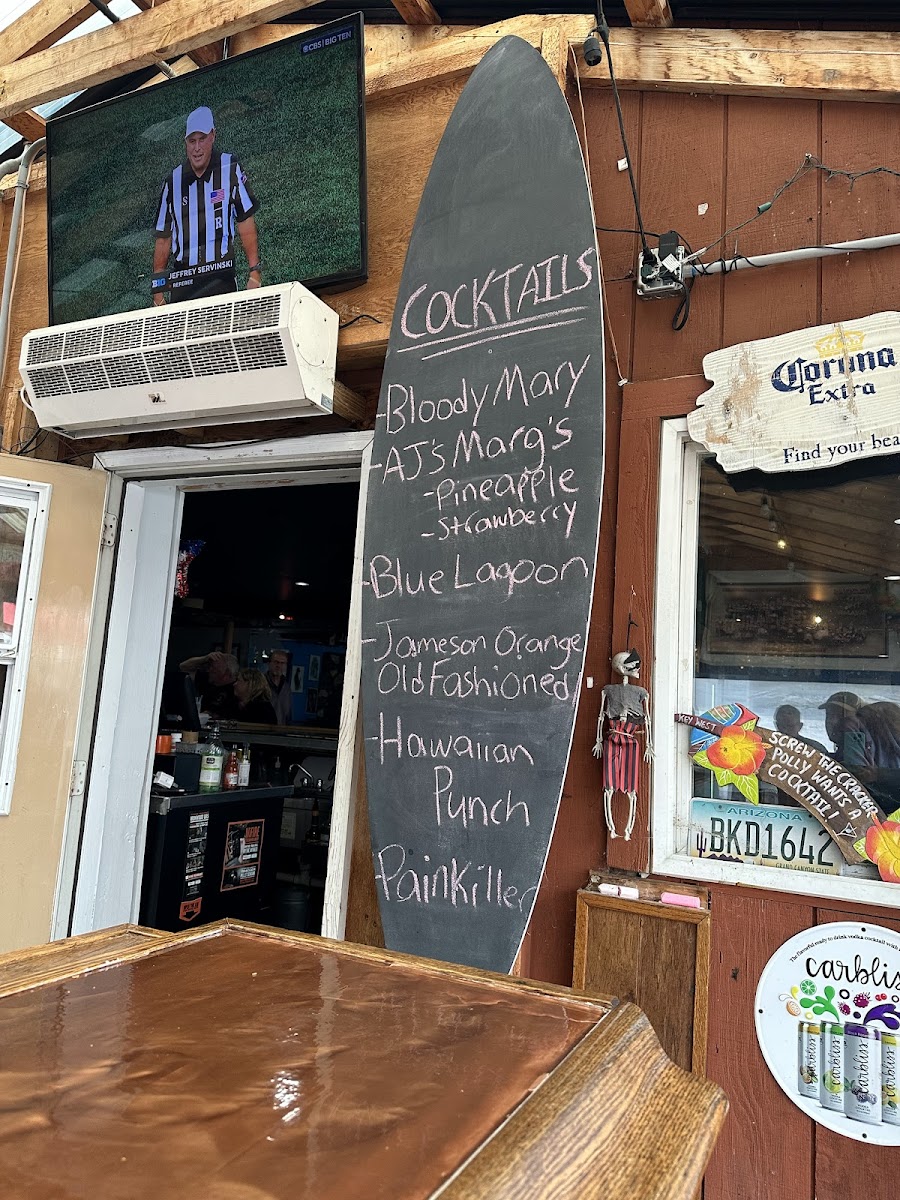 CBS | BIG TEN
S
R
B1G
JEFFREY SERVINSKI
REFEREE
COCKTAILS
-Bloody Mary
-AJ's Marg's
-Pineapple
-Strawberry
-Blue Lagoon
-Jameson Orange
Old Fashioned
-Hawaiian
Punch
-Painkiller
Corona
Extra
Find your bea
KEY WEST
SCREW THE CRACKER
POLLY WANTS A
COCKTAIL!
ARIZONA
BKD1642
GRAND CANYON STATE
The flavorful ready to drink vodka cocktail with
carbliss
carbliss
carbliss
carbliss
carbliss